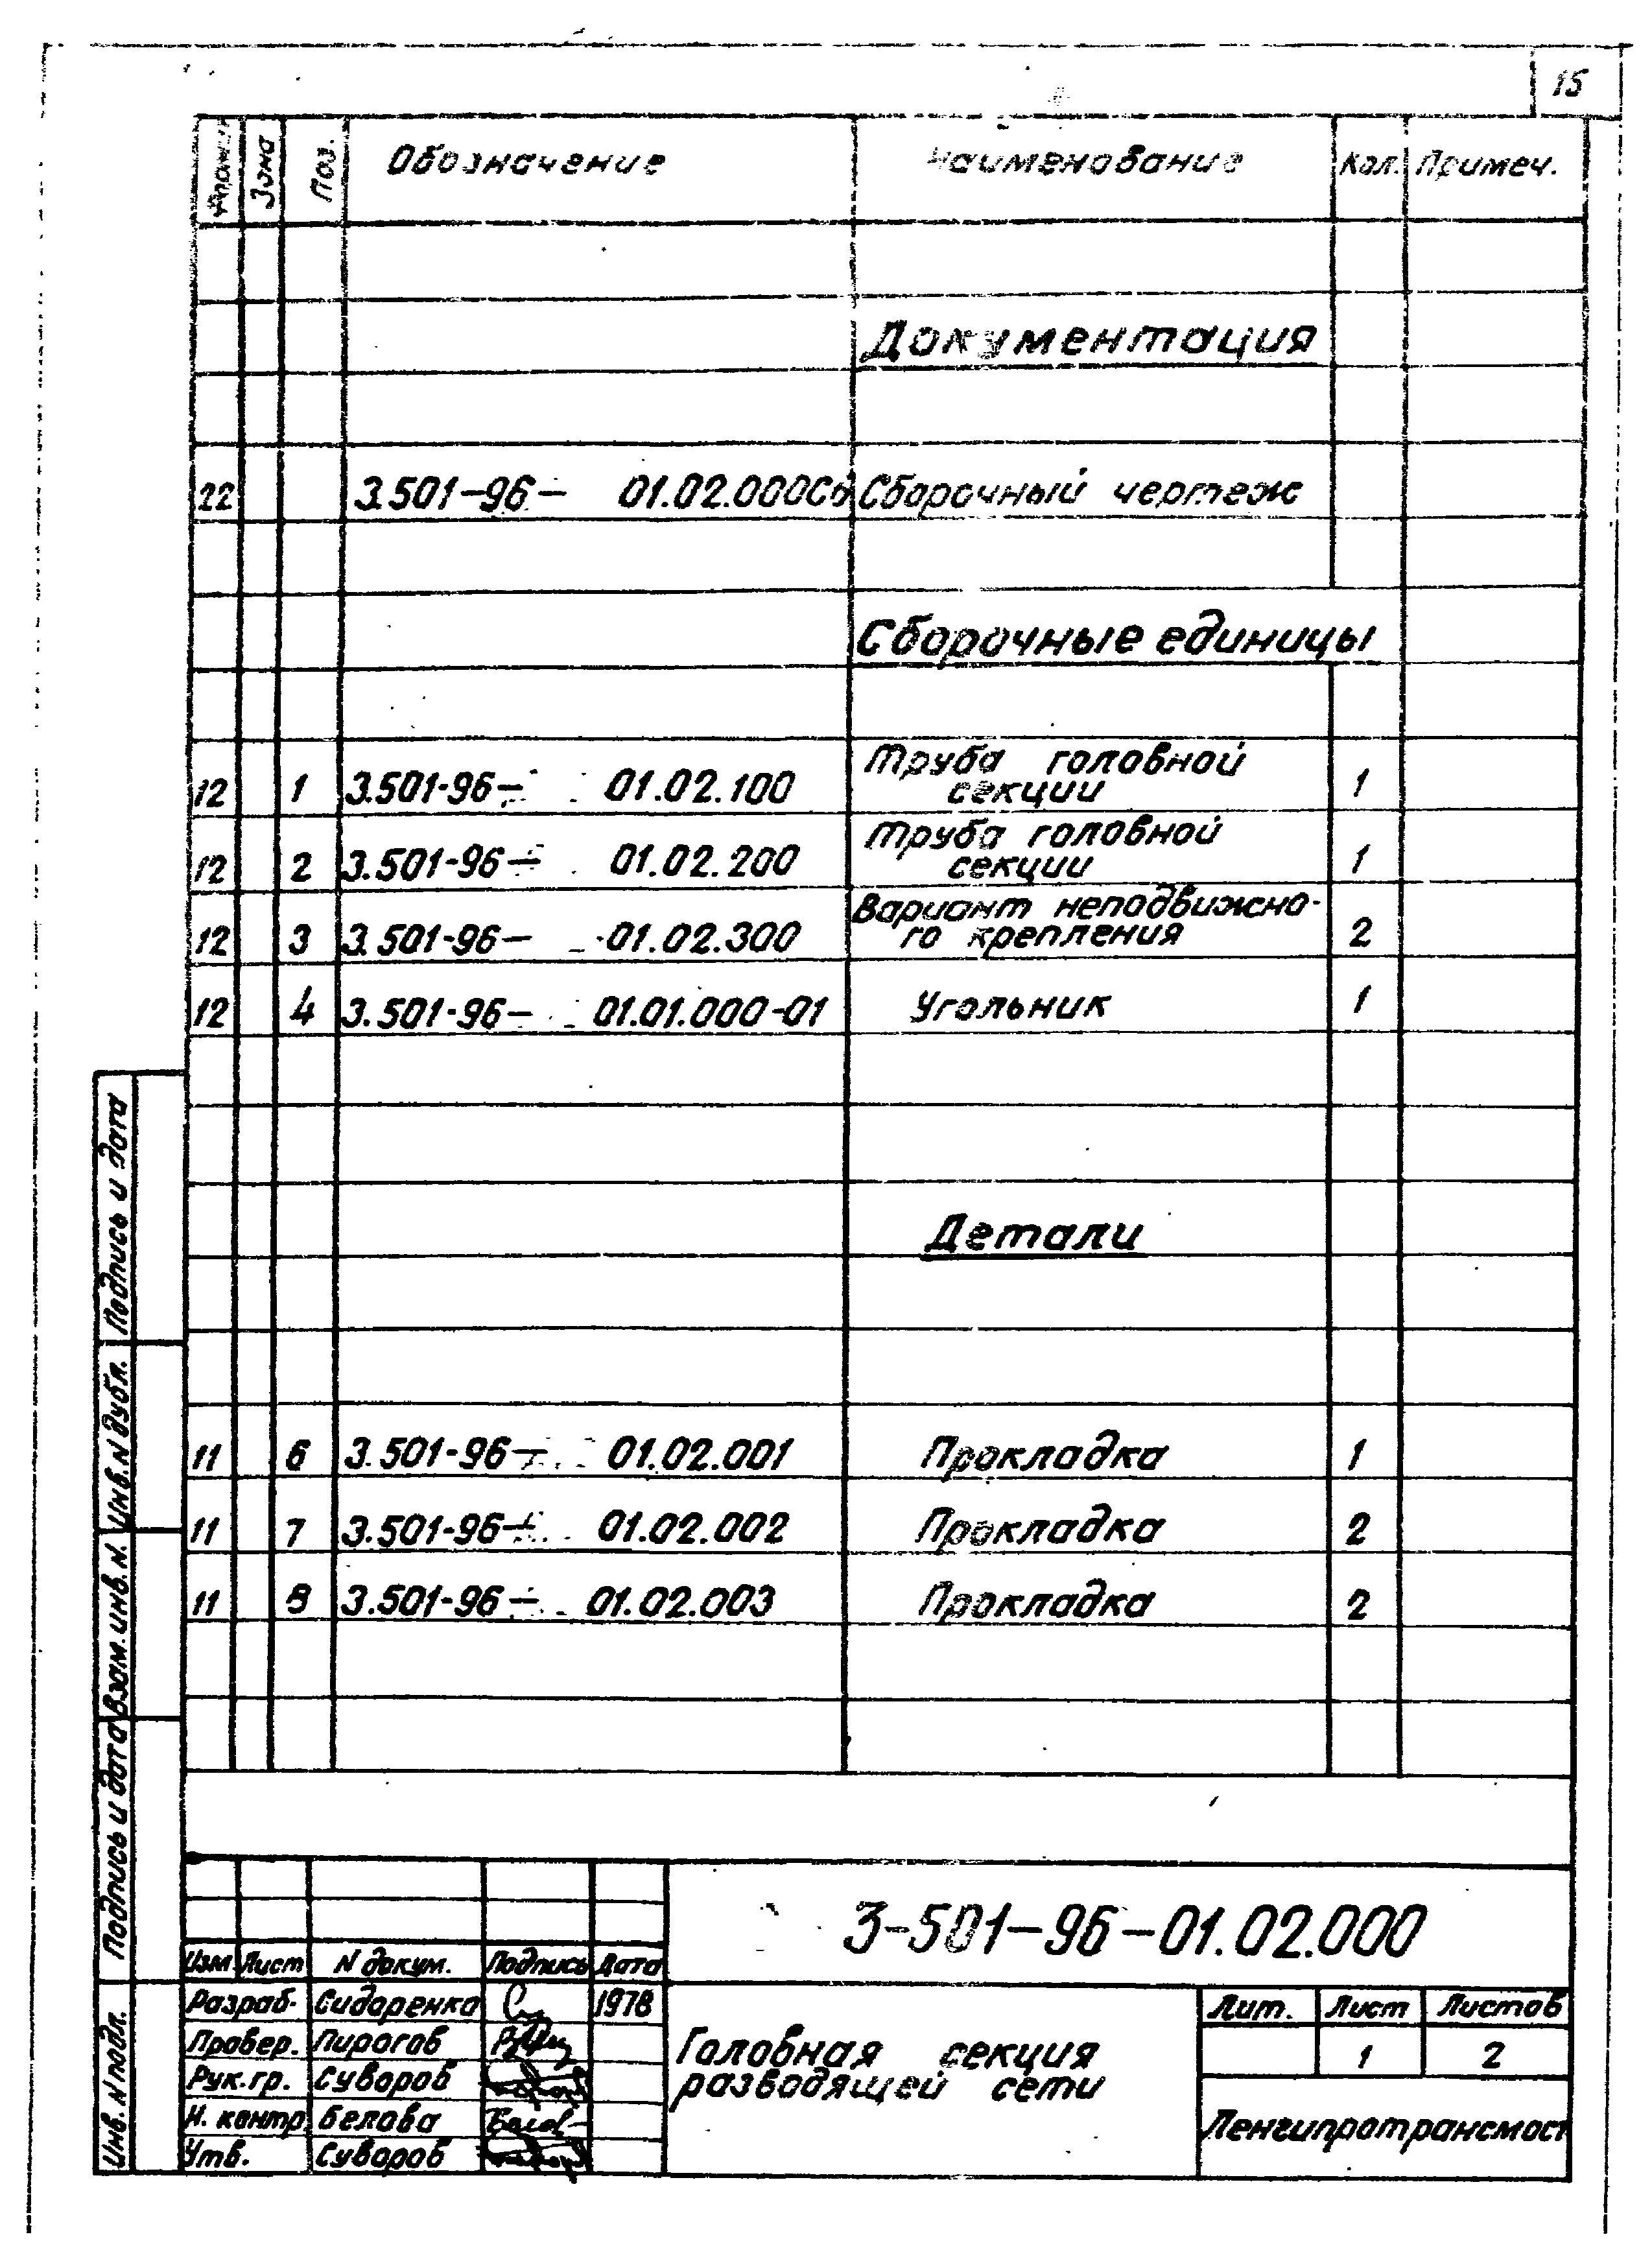 15
Формат Зона Поз. Обозначение Наименование Кол. Примеч.
Документация
22 3.501-96- 01.02.000СБ Сборочный чертеж
Сборочные единицы
12 1 3.501-96- 01.02.100 Труба головной
секции 1
12 2 3.501-96- 01.02.200 Труба головной
секции 1
12 3 3.501-96- 01.02.300 Вариант неподвижно-
го крепления 2
12 4 3.501-96- 01.01.000-01 Угольник 1
Детали
11 6 3.501-96- 01.02.001 Прокладка 1
11 7 3.501-96- 01.02.002 Прокладка 2
11 8 3.501-96- 01.02.003 Прокладка 2
Подпись и дата
Инв.N дубл.
Взам.инв.N.
Подпись и дата
Инв. N подл.
3-501-96-01.02.000
Изм Лист N докум. Подпись Дата
Разраб. Сидоренко 1978
Провер. Пирогов
Рук.гр. Суворов
Н. контр. Белова Белов
Утв. Суворов
Головная секция
разводящей сети
Лит. Лист Листов
1 2
Ленгипротрансмост